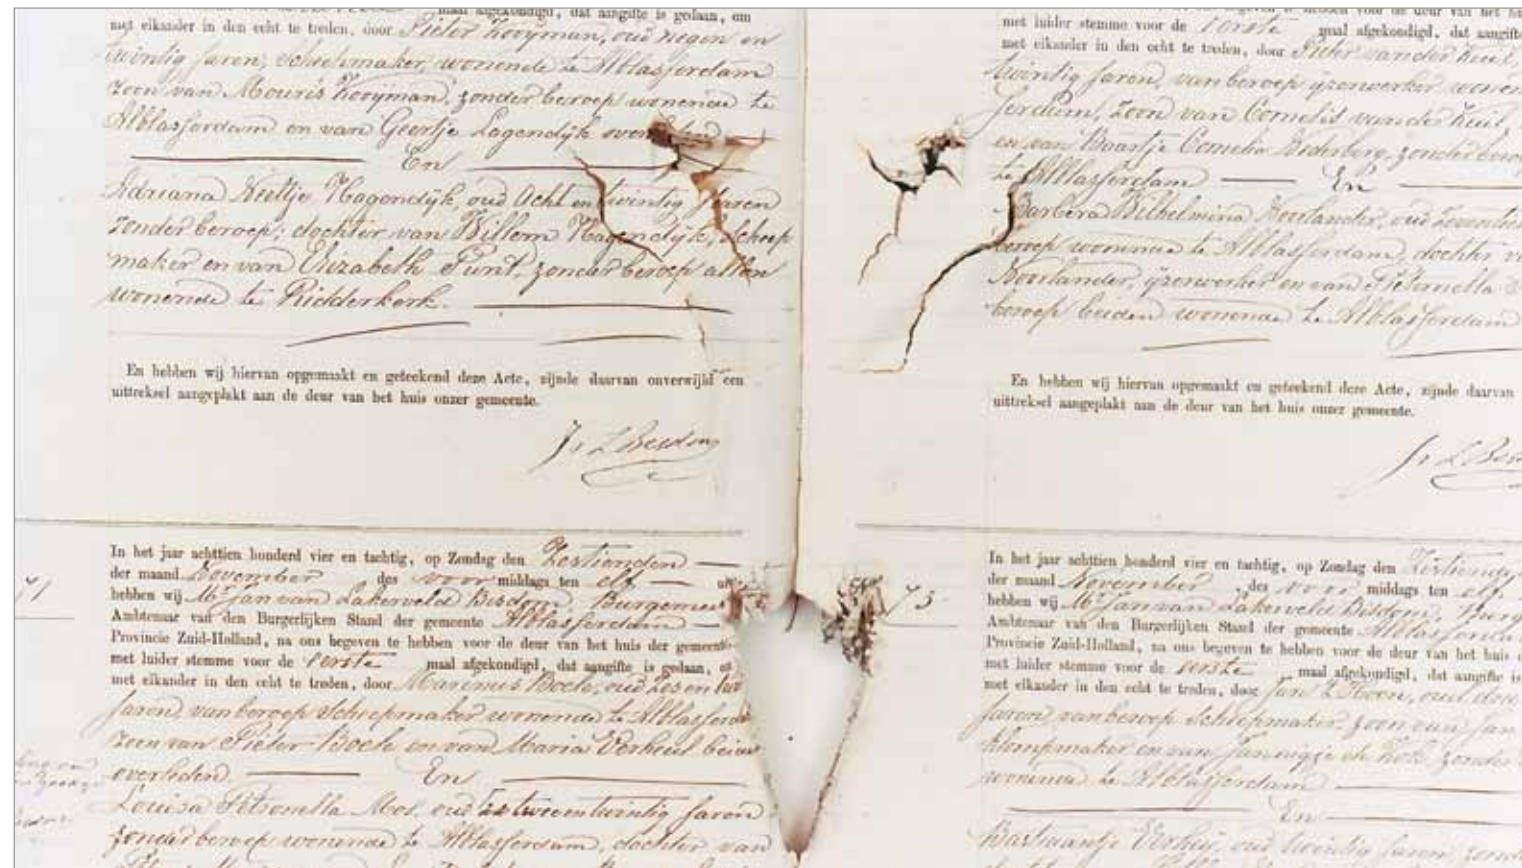 maal afgekondigd, dat aangifte is gedaan, om
met elkander in den echt te treden, door Pieter Kooyman, oud negen en
twintig jaren, scheepmaker, wonende te Alblasserdam
zoon van Mouris Kooyman, zonder beroep wonende te
Alblasserdam en van Geertje Lagendijk overleden
En
Adriana Neeltje Hagendijk, oud Acht en twintig jaren
zonder beroep; dochter van Willem Hagendijk, scheep
maker en van Elizabeth Punt, zonder beroep allen
wonende te Ridderkerk.
En hebben wij hiervan opgemaakt en geteekend deze Acte, zijnde daarvan onverwijld een
uittreksel aangeplakt aan de deur van het huis onzer gemeente.
Jv L Bisdom
71
In het jaar achttien honderd vier en tachtig, op Zondag den Zestienden
der maand November des voor middags ten elf
hebben wij Mr Jan van Lakerveld Bisdom, Burgemees
Ambtenaar van den Burgerlijken Stand der gemeente Alblasserdam
Provincie Zuid-Holland, na ons begeven te hebben voor de deur van het huis der gemeente
met luider stemme voor de eerste maal afgekondigd, dat aangifte is gedaan, om
met elkander in den echt te treden, door Marinus Boele, oud Zes en twin
jaren, van beroep scheepmaker wonende te Alblasserda
zoon van Pieter Boele en van Maria Verheul beiden
overleden En
Louisa Petronella Mos, oud tweeentwintig jaren
zonder beroep wonende te Alblasserdam, dochter van
met luider stemme voor de eerste maal afgekondigd, dat aangifte
met elkander in den echt te treden, door Pieter van der Heul,
twintig jaren, van beroep ijzerwerker wonen
serdam, zoon van Cornelis van der Heul,
en van Baartje Cornelia zonder beroep
te Alblasserdam En
Barbera Wilhelmina Noorlander, oud zeventien
beroep wonende te Alblasserdam, dochter v
Noorlander, ijzerwerker en van Pieternella
beroep beiden wonende te Alblasserdam
En hebben wij hiervan opgemaakt en geteekend deze Acte, zijnde daarvan
uittreksel aangeplakt aan de deur van het huis onzer gemeente.
Jv L Bis
73
In het jaar achttien honderd vier en tachtig, op Zondag den Zestiende
der maand November des voor middags ten elf
hebben wij Mr Jan van Lakerveld Bisdom, Burg
Ambtenaar van den Burgerlijken Stand der gemeente Alblasserda
Provincie Zuid-Holland, na ons begeven te hebben voor de deur van het huis
met luider stemme voor de eerste maal afgekondigd, dat aangifte is
met elkander in den echt te treden, door Jan 't Hoen, oud
jaren, van beroep scheepmaker, zoon van Jan
klompmaker en van Jannigje de Kok, zonder
wonende te Alblasserdam
En
Bastiaantje oud twintig jaren, zonde